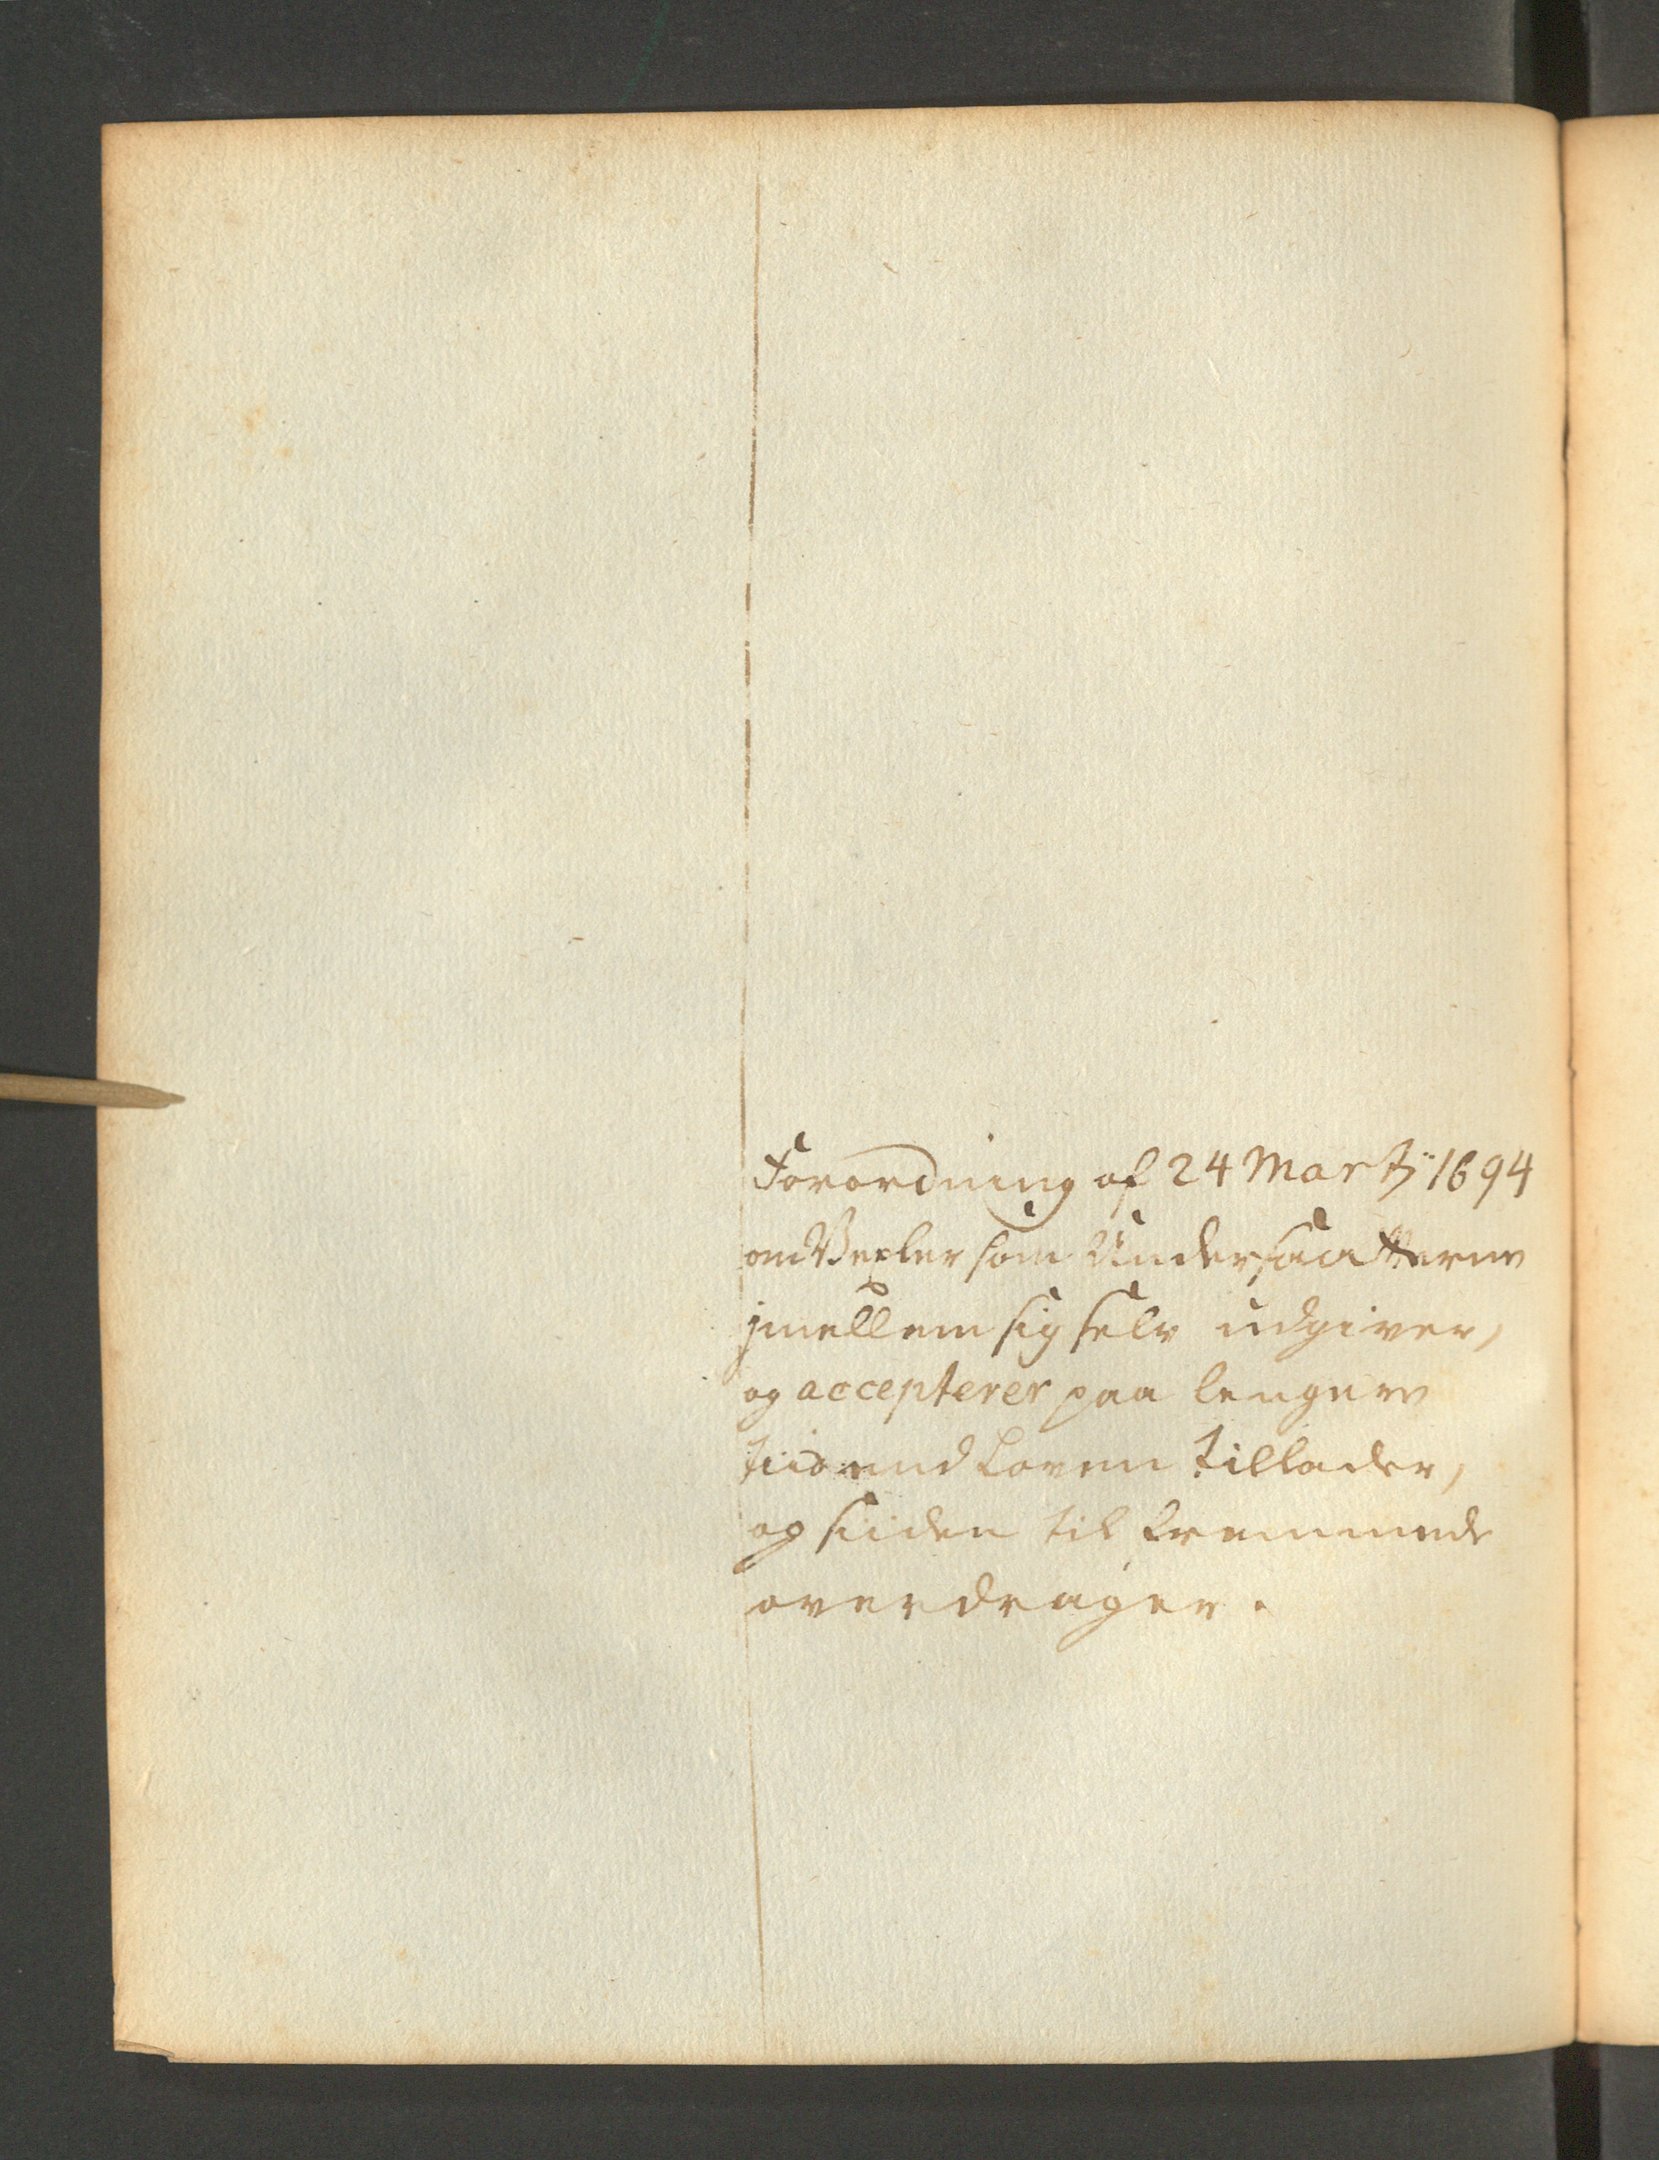 Forordning af 24 Martÿ 1694
om Vexler som Undersaatterne
jmellem sig selv udgiver,
og accepterer paa lengere
tiid end Loven tillader,
og siiden til fremmede
overdrager.